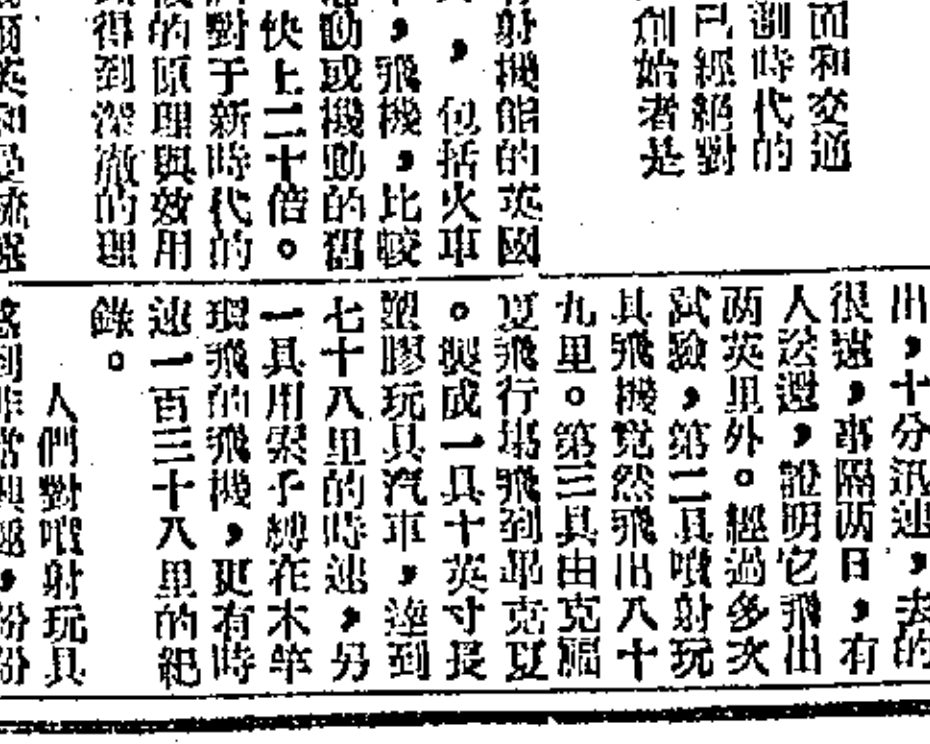 面和交通
創時代的
已經絕對
創始者是
射機能的英國
，包括火車
，飛機，比較
動或機動的舊
快上二十倍。
對于新時代的
的原理與效用
得到深澈的理
出，十分迅速，去的
很遠，事隔两日，有
人送還，證明它飛出
两英里外。經過多次
試驗，第二具噴射玩
具飛機竟然飛出八十
九里。第三具由克福
夏飛行場飛到畢克夏
。製成一具十英寸長
塑膠玩具汽車，達到
七十八里的時速，另
一具用索子縛在木竿
環飛的飛機，更有時
速一百三十八里的紀
錄。
人們對噴射玩具
感到非常興趣，紛紛